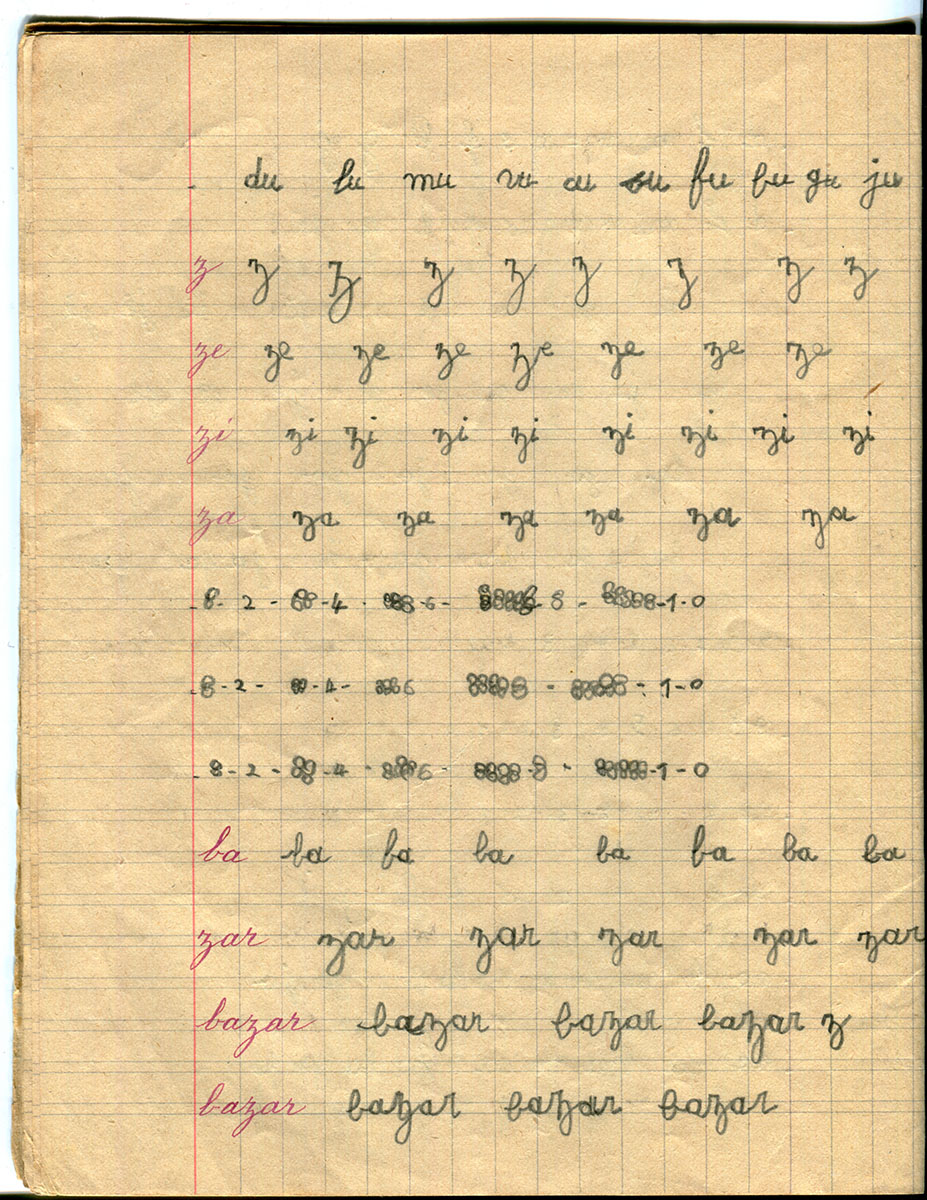 du lu mu ru cu su fu bu gu ju
z z z z z z z z z
ze ze ze ze ze ze ze ze
zi zi zi zi zi zi zi zi zi
za za za za za za za
8 - 2 - 88 - 4 - 888 - 6 - 8888 - 8 - 88888 - 1 - 0
8 - 2 - 88 - 4 - 888 6 8888 8 - 88888 - 1 - 0
8 - 2 - 88 - 4 - 888 6 8888 - 8 - 88888 - 1 - 0
ba ba ba ba ba ba ba ba
zar zar zar zar zar zar
bazar bazar bazar bazar z
bazar bazar bazar bazar